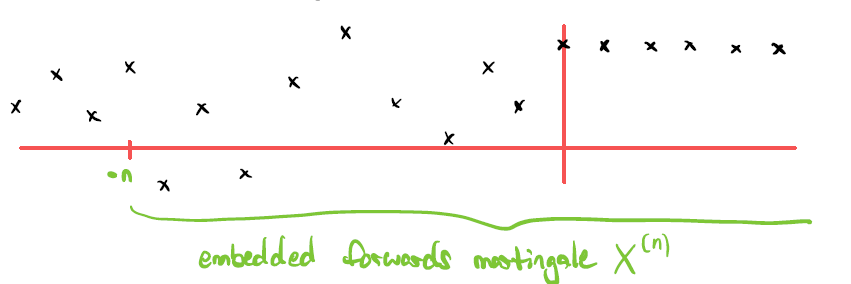 -n
embedded forwards martingale X^(n)